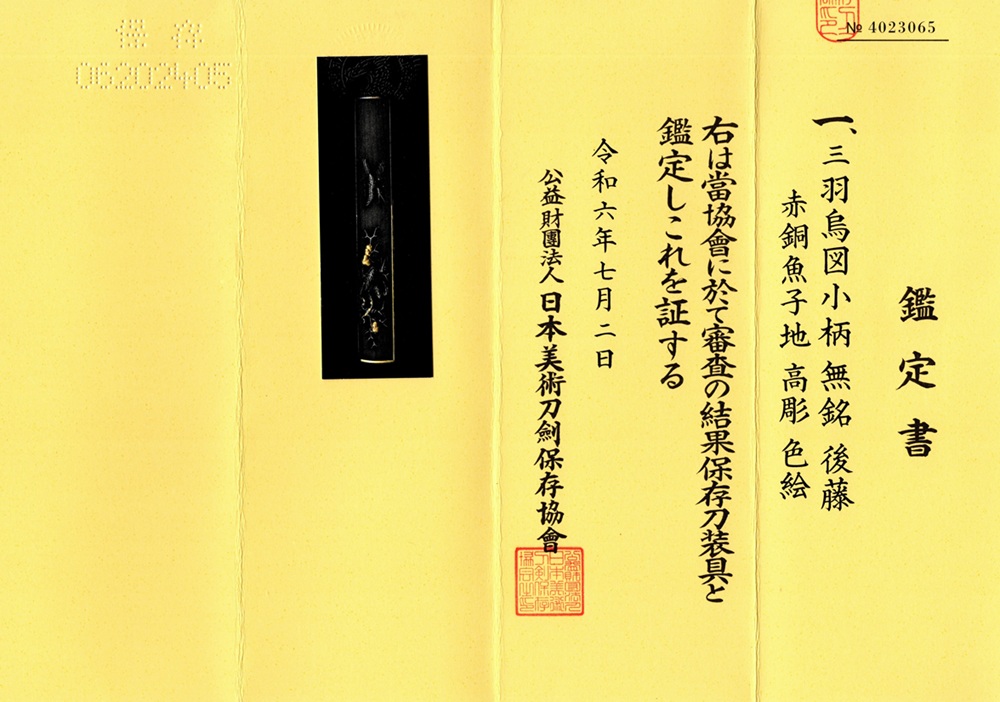 № 4023065
鑑定書
一、三羽烏図小柄 無銘 後藤
赤銅魚子地 高彫 色絵
右は當協會に於て審査の結果保存刀装具と
鑑定しこれを証する
令和六年七月二日
公益財團法人 日本美術刀劍保存協會
保存
06202405